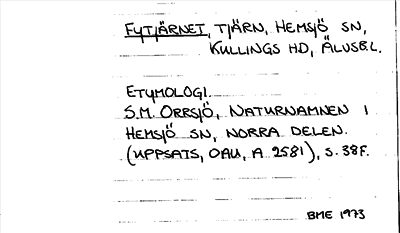 Fytjärnet, tjärn, Hemsjö sn,
Kullings hd, Älvsb.l.
Etymologi.
S.M. Orrsjö, Naturnamnen i
Hemsjö sn, norra delen.
(uppsats, OAU, A 2581), s. 38f.
BME 1973